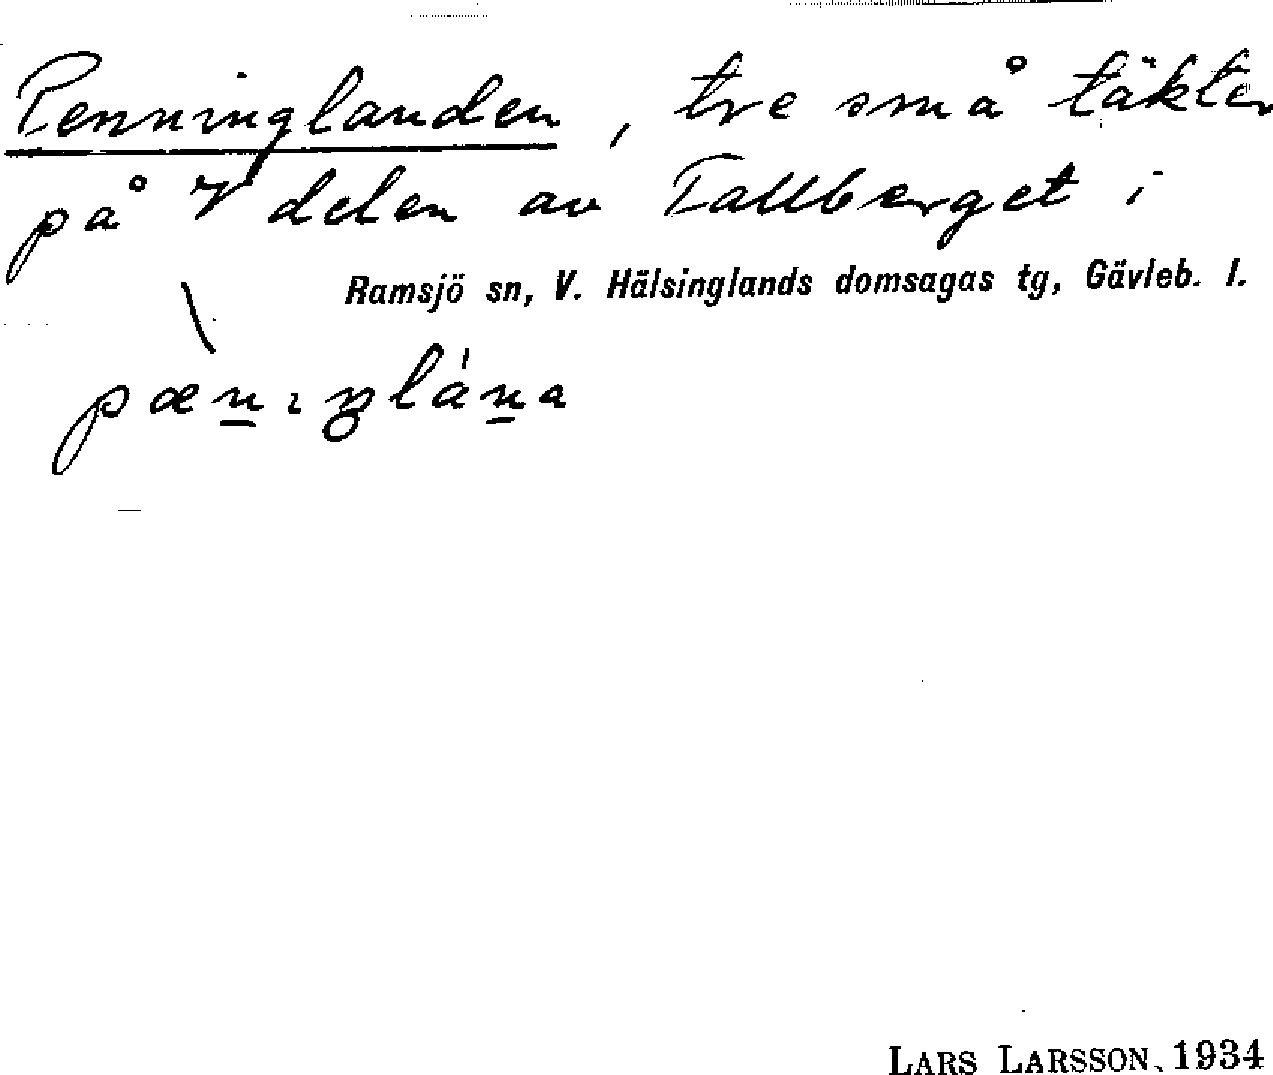 Penninglanden, tre små täkter
på V delen av Tallberget i
Ramsjö sn, V. Hälsinglands domsagas tg, Gävleb. l.
LARS LARSSON, 1934